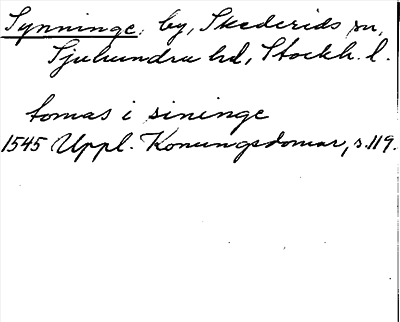 Synninge, by, Skederids sn,
Sjuhundra hd, Stockh. l.
tomas i sininge
1545 Uppl. Konungsdomar, s. 119.